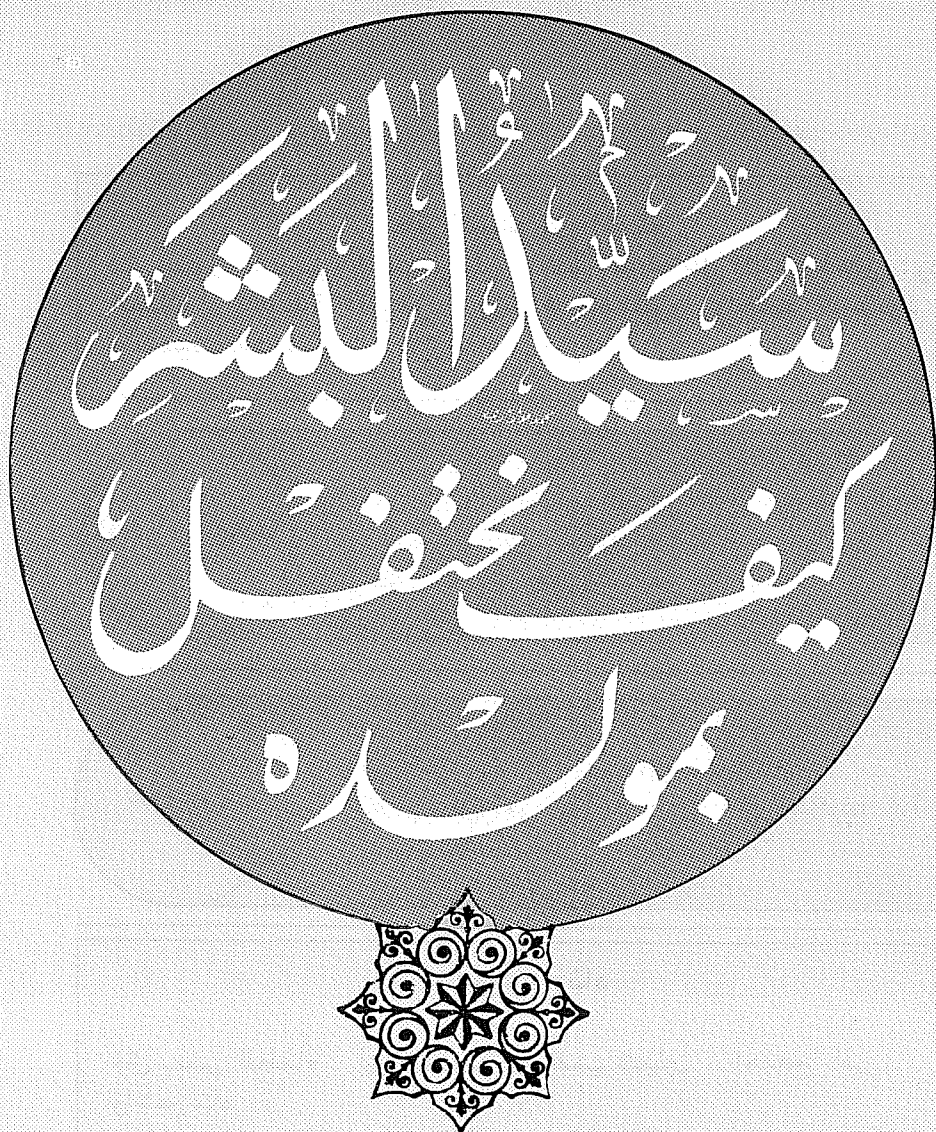 سَيِّدُ البَشَر
كيف نحتفل
بمولده